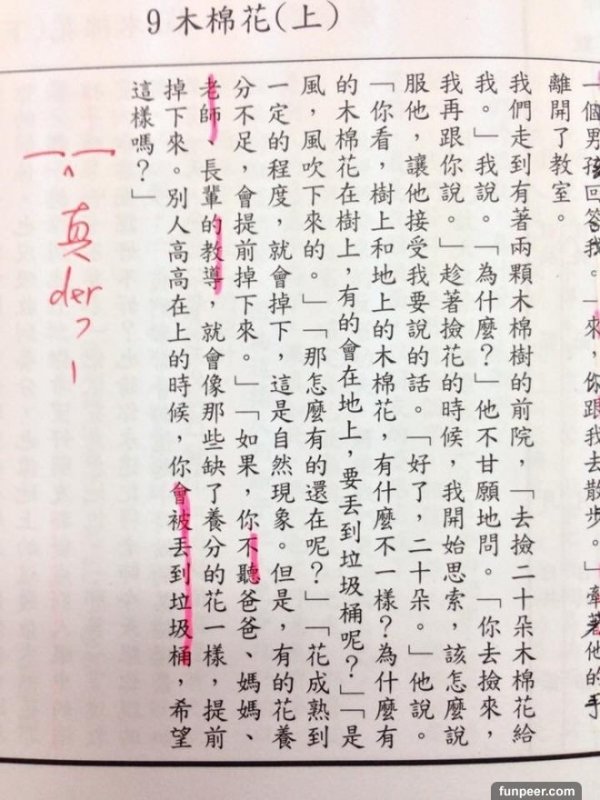 9木棉花(上)
一個男孩回答我。「來，你跟我去散步。」牽著他的手
離開了教室。
我們走到有著兩顆木棉樹的前院，「去撿二十朵木棉花給
我。」我說。「為什麼？」他不甘願地問。「你去撿來，
我再跟你說。」趁著撿花的時候，我開始思索，該怎麼說
服他，讓他接受我要說的話。「好了，二十朵。」他說。
「你看，樹上和地上的木棉花，有什麼不一樣？為什麼有
的木棉花在樹上，有的會在地上，要丟到垃圾桶呢？」「是
風，風吹下來的。」「那怎麼有的還在呢？」「花成熟到
一定的程度，就會掉下，這是自然現象。但是，有的花養
分不足，會提前掉下來。」「如果，你不聽爸爸、媽媽、
老師、長輩的教導，就會像那些缺了養分的花一樣，提前
掉下來。別人高高在上的時候，你會被丟到垃圾桶，希望
這樣嗎？」
真
der
funpeer.com